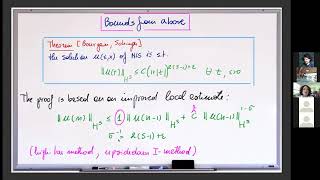 Bounds from above
Theorem [Bourgain, Staffilani]
the solution u(t,x) of NLS is s.t.
‖u(t)‖_{H^s} ≤ C(1+|t|)^{2(s-1)+ε} ∀ t, ε>0
The proof is based on an improved local estimate:
‖u(n)‖_{H^s} ≤ 1 ‖u(n-1)‖_{H^s} + C ‖u(n-1)‖_{H^s}^{1-δ}
δ^{-1} = 2(s-1)+ε
(high/low method, upside down I-method)